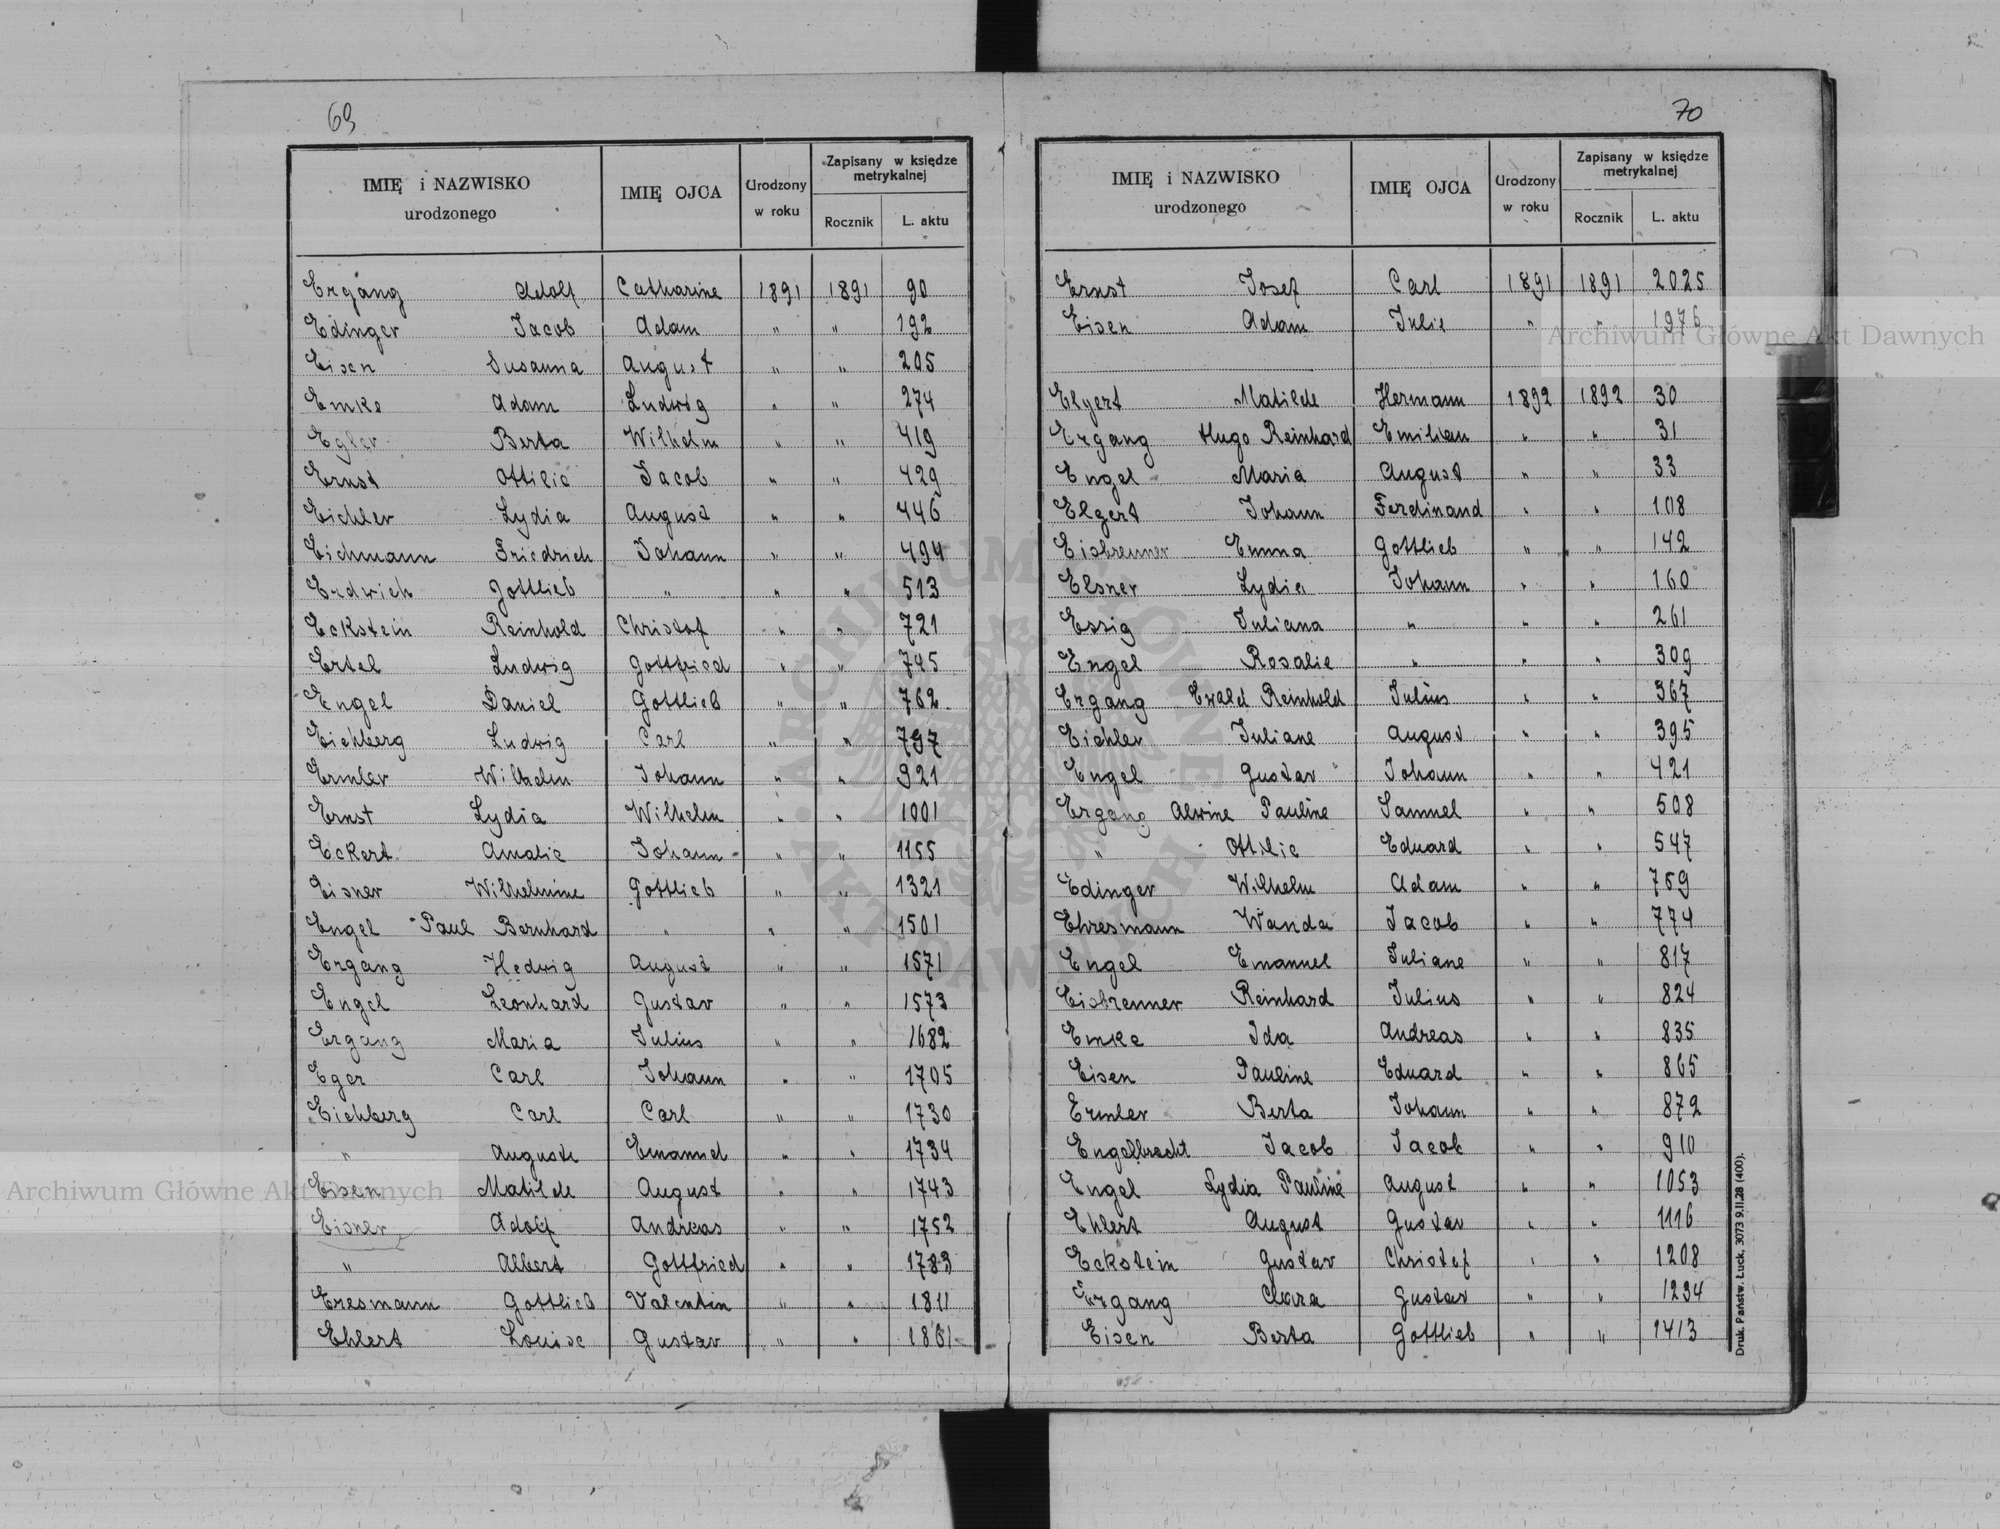 69
IMIĘ i NAZWISKO urodzonego IMIĘ OJCA Urodzony w roku Zapisany w księdze metrykalnej Rocznik L. aktu
Ergang Adolf Catharine 1891 1891 90
Edinger Jacob Adam " " 192
Eisen Susanna August " " 205
Emke Adam Ludwig " " 274
Egler Berta Wilhelm " " 419
Ernst Ottilie Jacob " " 429
Eichler Lydia August " " 446
Eichmann Friedrich Johann " " 494
Erdwich Gottlieb " " " 513
Eckstein Reinhold Christof " " 721
Ertel Ludwig Gottfried " " 745
Engel Daniel Gottlieb " " 762
Eichberg Ludwig Carl " " 797
Ermler Wilhelm Johann " " 921
Ernst Lydia Wilhelm " " 1001
Eckert Amalie Johann " " 1155
Eisner Wilhelmine Gottlieb " " 1321
Engel Paul Bernhard " " " 1501
Ergang Hedwig August " " 1571
Engel Leonhard Gustav " " 1573
Ergang Maria Julius " " 1682
Eger Carl Johann " " 1705
Eichberg Carl Carl " " 1730
" Auguste Emanuel " " 1734
Eisen Matilde August " " 1743
Eisner Adolf Andreas " " 1752
" Albert Gottfried " " 1783
Eresmann Gottlieb Valentin " " 1811
Ehlert Louise Gustav " " 1861
70
IMIĘ i NAZWISKO urodzonego IMIĘ OJCA Urodzony w roku Zapisany w księdze metrykalnej Rocznik L. aktu
Ernst Josef Carl 1891 1891 2025
Eisen Adam Julie " " 1976
Elgert Matilde Hermann 1892 1892 30
Ergang Hugo Reinhard Emilian " " 31
Engel Maria August " " 33
Elgert Johann Ferdinand " " 108
Eisbrenner Emma Gottlieb " " 142
Elsner Lydia Johann " " 160
Essig Juliana " " " 261
Engel Rosalie " " " 309
Ergang Ewald Reinhold Julius " " 367
Eichler Juliane August " " 395
Engel Gustav Johann " " 421
Ergang Alwine Pauline Samuel " " 508
" Ottilie Eduard " " 547
Edinger Wilhelm Adam " " 759
Ehresmann Wanda Jacob " " 774
Engel Emanuel Juliane " " 817
Eisbrenner Reinhard Julius " " 824
Emke Ida Andreas " " 835
Eisen Pauline Eduard " " 865
Ermler Berta Johann " " 872
Engelbrecht Jacob Jacob " " 910
Engel Lydia Pauline August " " 1053
Ehlert August Gustav " " 1116
Eckstein Gustav Christof " " 1208
Ergang Clara Gustav " " 1234
Eisen Berta Gottlieb " " 1413
Druk. Państw. Łuck, 3073 9.II.28 (400).
Archiwum Główne Akt Dawnych
Archiwum Główne Akt Dawnych
ARCHIWUM GŁÓWNE AKT DAWNYCH